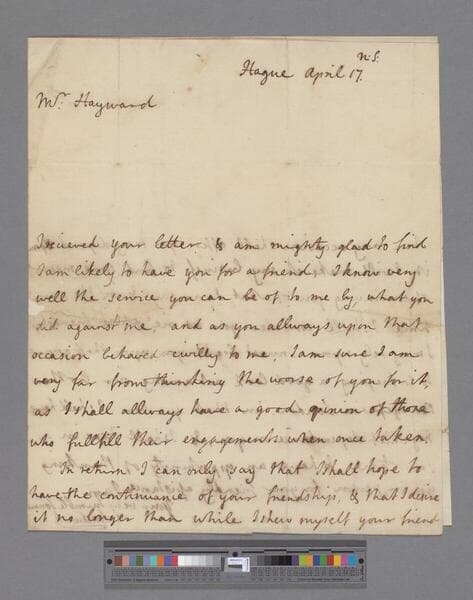 Hague April 17. N.S.
Mr. Hayward
I recieved your letter & am mighty glad to find
I am likely to have you for a friend, I know very
well the service you can be of to me by, what you
did against me, and as you allways upon that
occasion behaved civilly to me, I am sure I am
very far from thinking the worse of you for it,
as I shall allways have a good opinion of those
who fullfill their engagements when once taken.
In return I can only say that I shall hope to
have the continuance of your friendship, & that I desire
it no longer than while I shew myself your friend